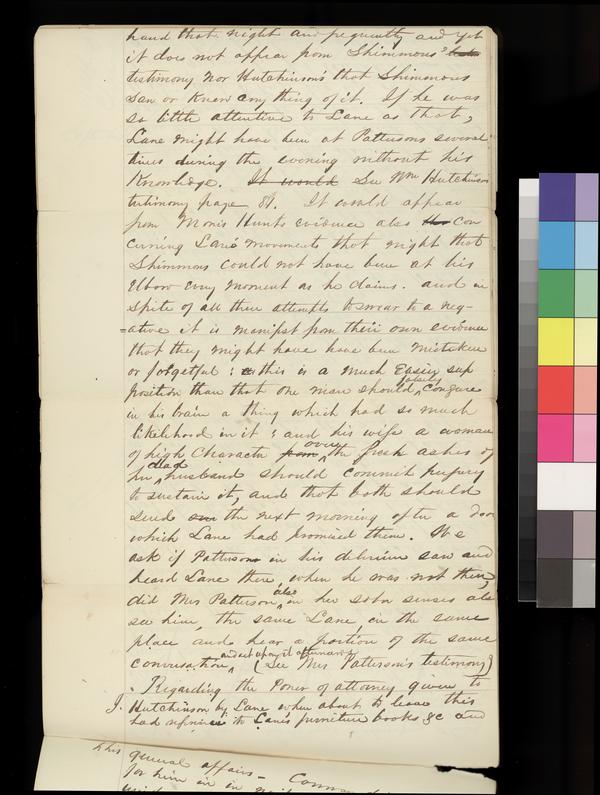 hand that night and frequently and yet
it does not appear from Shimmons'
testimony nor Hutchinson's that Shimmons
saw or knew any thing of it. If he was
so little attentive to Lane as that,
Lane might have been at Pattersons several
times during the evening without his
Knowledge. It would See Wm Hutchinson
testimony page 81. It would appear
from Moris Hunts evidence also the con
cerning Lane movements that night that
Shimmons could not have been at his
elbow every moment as he claims. and in
spite of all these attempts to swear to a neg-
=ative it is manifest from their own evidence
that they might have have been mistaken
or forgetful: & this is a much Easier sup
position than that one man should falsely conjure
in his brain a thing which had so much
likelihood in it; and his wife a woman
of high character from over the fresh ashes of
her dead husband should commit perjury
to sustain it, and that both should
send the next morning after a door
which Lane had promised them. We
ask if Patterson in his delirium saw and
heard Lane there, when he was not then,
did Mrs Patterson also in her sober senses also
see him, the same Lane, in the same
place and hear a portion of the same
conversation, and act upon it afterwards (See Mrs Patterson's testimony)
Regarding the Power of attorney given to
J. Hutchinson by Lane when about to leave this
had reference to Lane's furniture books &c and
this general affairs -
for him in